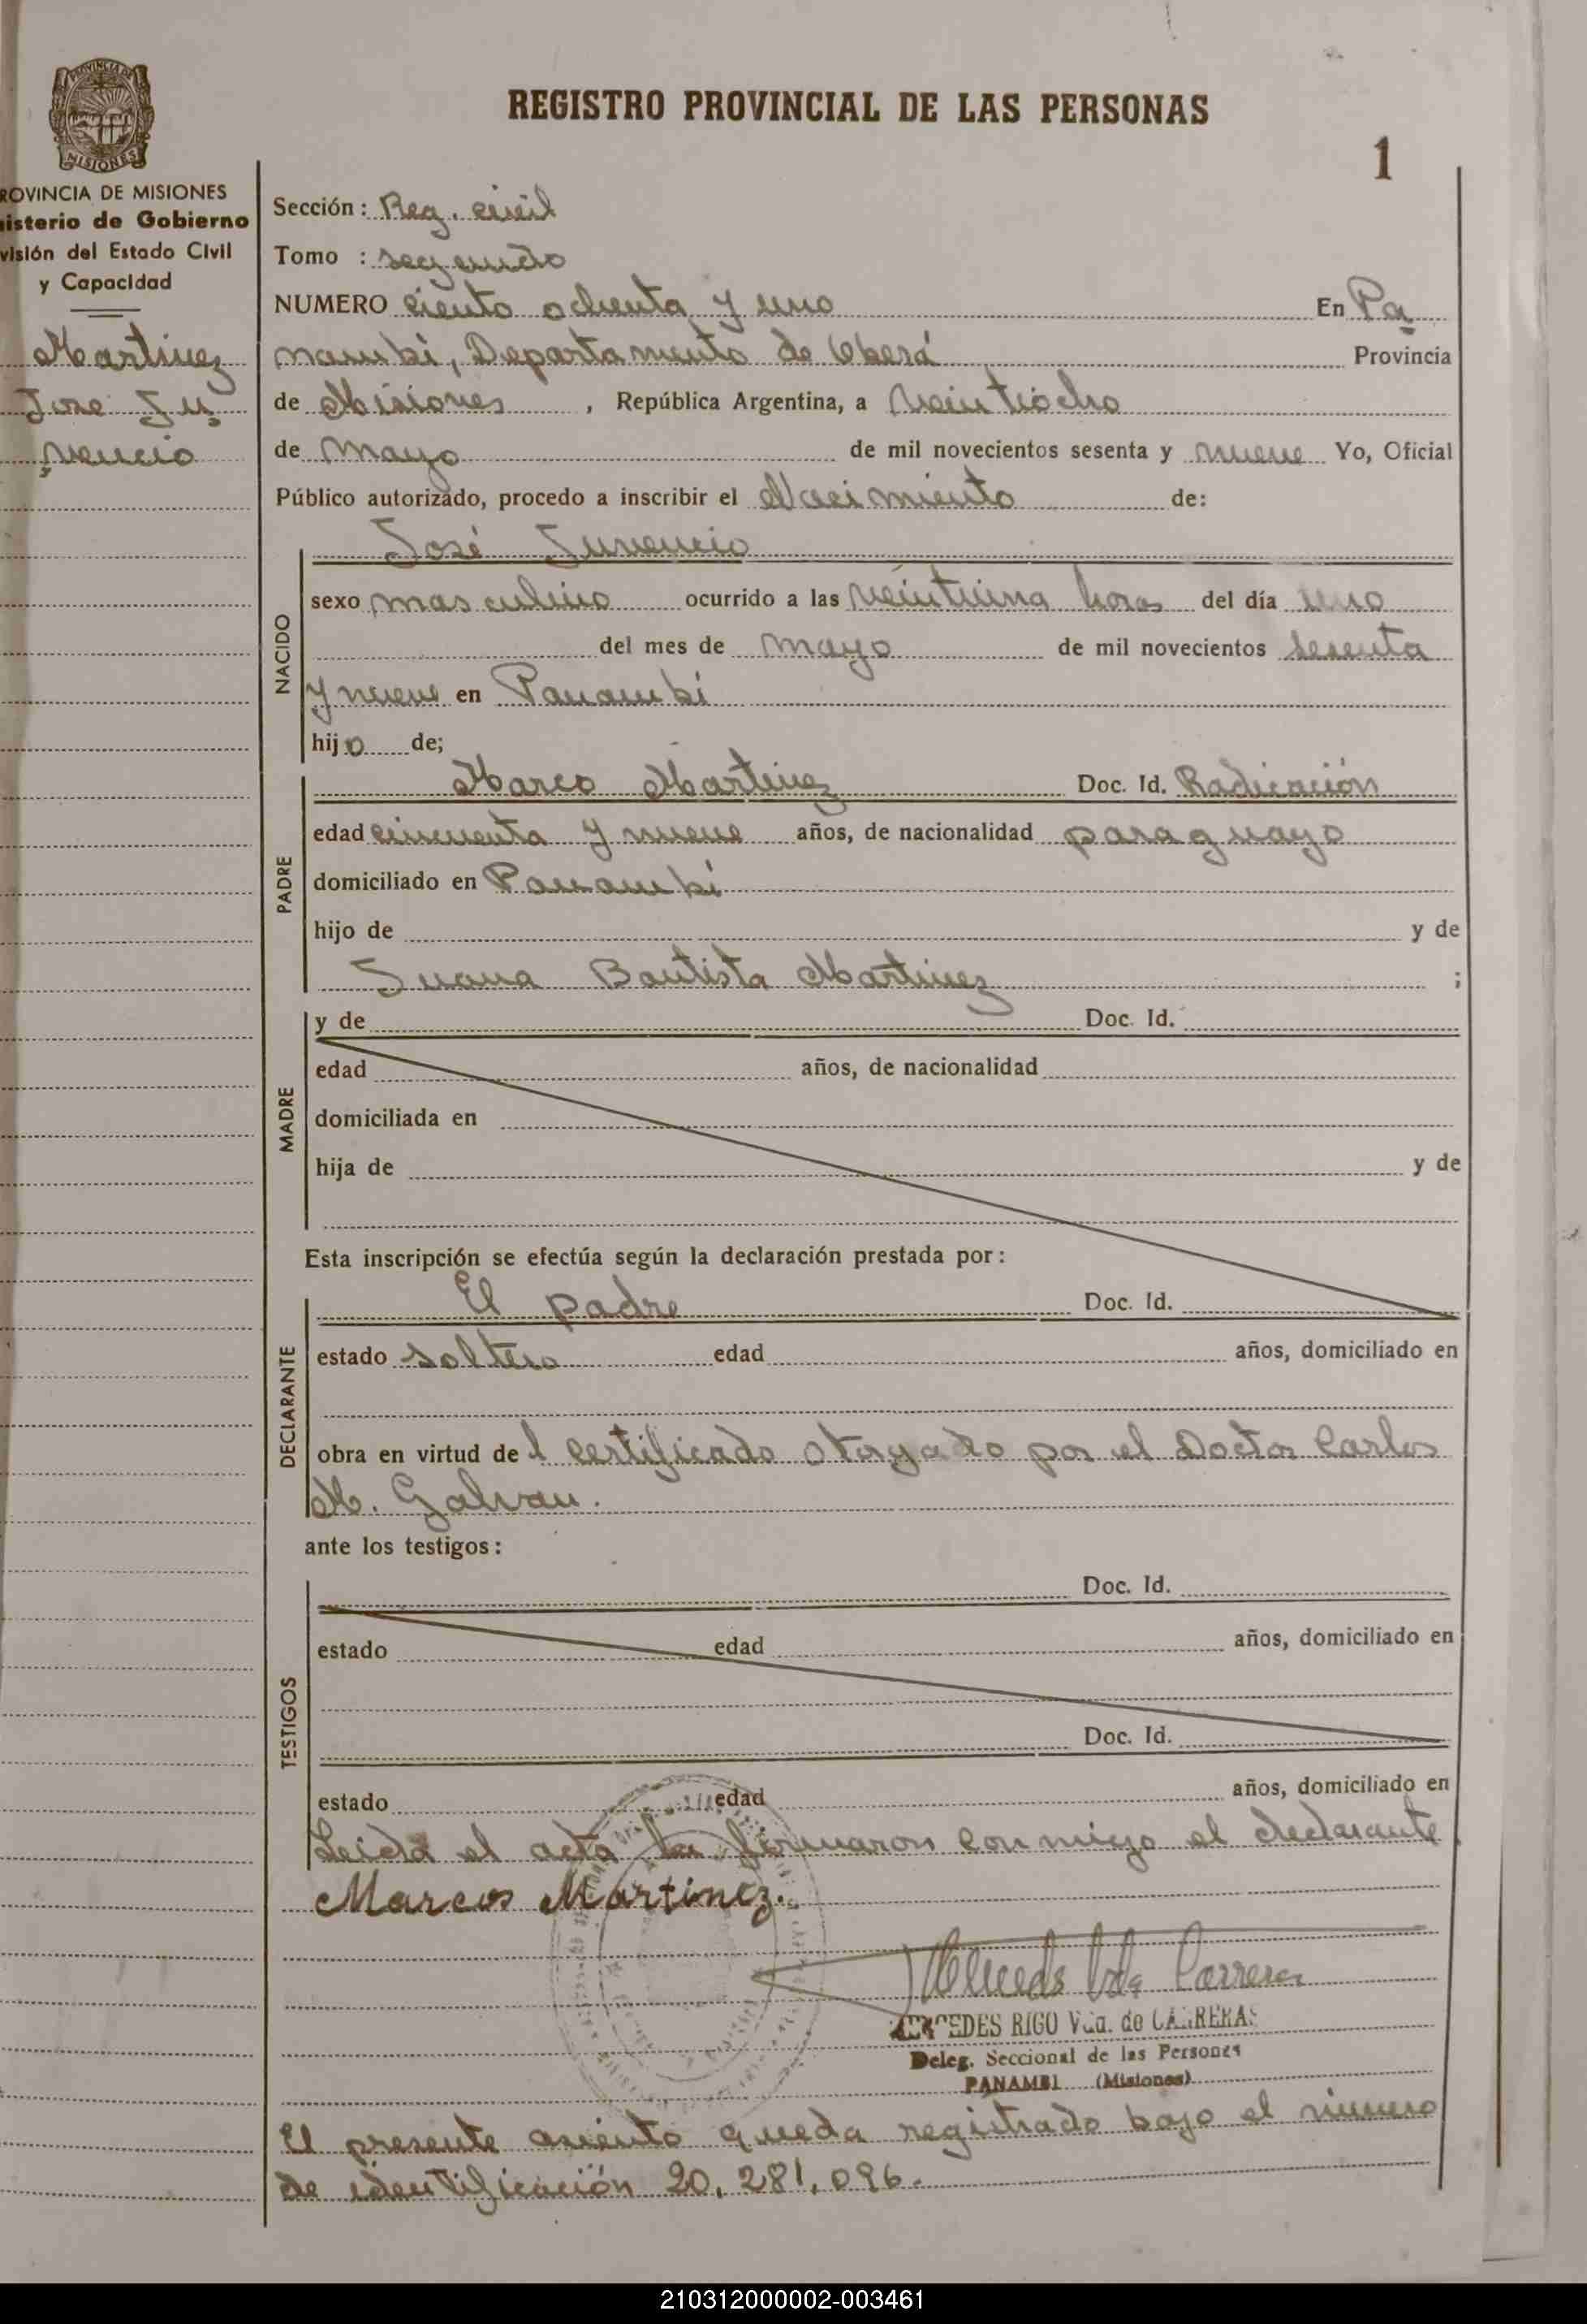 REGISTRO PROVINCIAL DE LAS PERSONAS
1
PROVINCIA DE
MISIONES
ROVINCIA DE MISIONES
isterio de Gobierno
visión del Estado Civil
y Capacidad
Martinez
Jose Ju
vencio
Sección: Reg. civil
Tomo : segundo
NUMERO ciento ochenta y uno En Pa
nambí, Departamento de Oberá Provincia
de Misiones , República Argentina, a veintiocho
de mayo de mil novecientos sesenta y nueve Yo, Oficial
Público autorizado, procedo a inscribir el Nacimiento de:
NACIDO
José Juvencio
sexo masculino ocurrido a las veintiuna horas del día uno
del mes de mayo de mil novecientos sesenta
y nueve en Panambí
hijo de;
PADRE
Marco Martinez Doc. Id. Radicación
edad cincuenta y nueve años, de nacionalidad paraguayo
domiciliado en Panambí
hijo de y de
Juana Bautista Martinez ;
MADRE
y de Doc. Id.
edad años, de nacionalidad
domiciliada en
hija de y de
Esta inscripción se efectúa según la declaración prestada por:
DECLARANTE
El padre Doc. Id.
estado soltero edad años, domiciliado en
obra en virtud del certificado otorgado por el Doctor Carlos
M. Galvan.
ante los testigos:
TESTIGOS
Doc. Id.
estado edad años, domiciliado en
Doc. Id.
estado edad años, domiciliado en
Leida el acta la firmaron conmigo el declarante
Marcos Martinez.
Mercedes Vda Carreras
MERCEDES RIGO Vda. de CARRERAS
Deleg. Seccional de las Personas
PANAMBI (Misiones)
El presente asiento queda registrado bajo el número
de identificación 20.281.096.
210312000002-003461